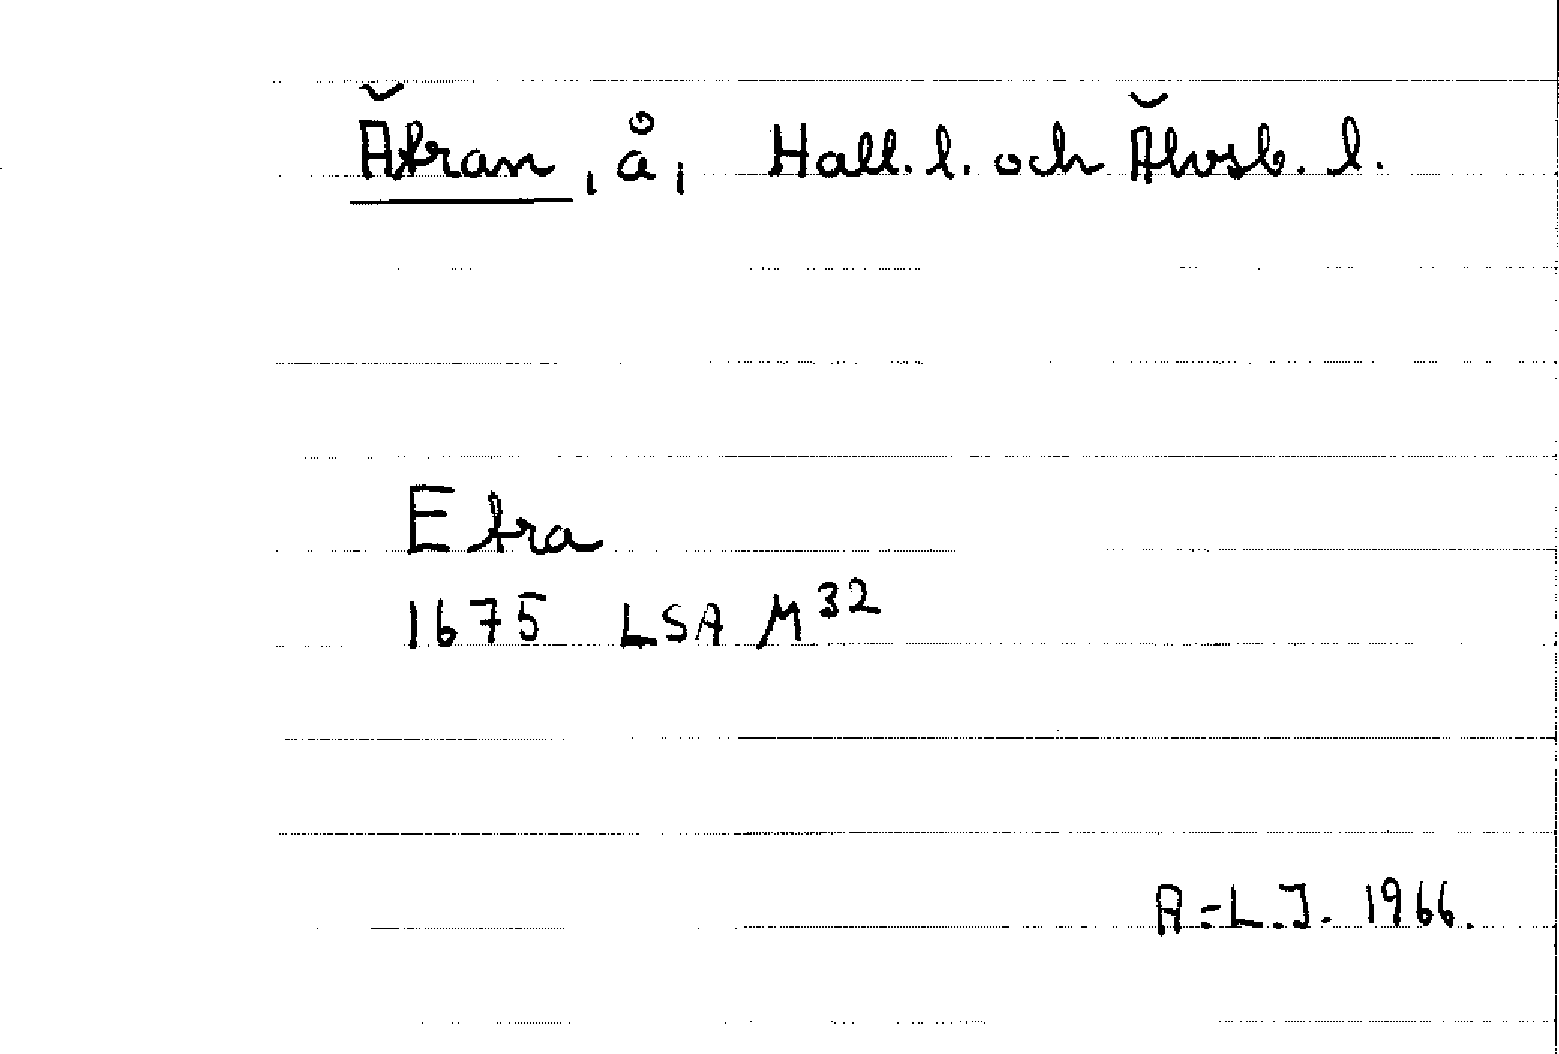 Ätran, å, Hall. l. och Älvsb. l.
Etra
1675 LSA M³²
A-L.J. 1966.